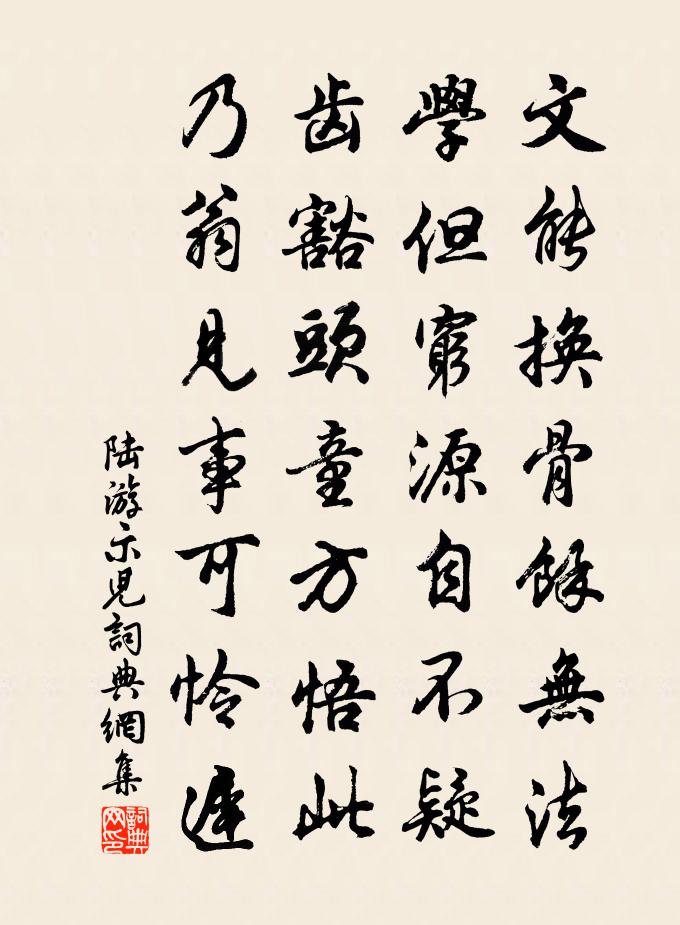 文能換骨餘無法
學但窮源自不疑
齿豁頭童方悟此
乃翁見事可憐遲
陆游示児詞典網集
詞典网印